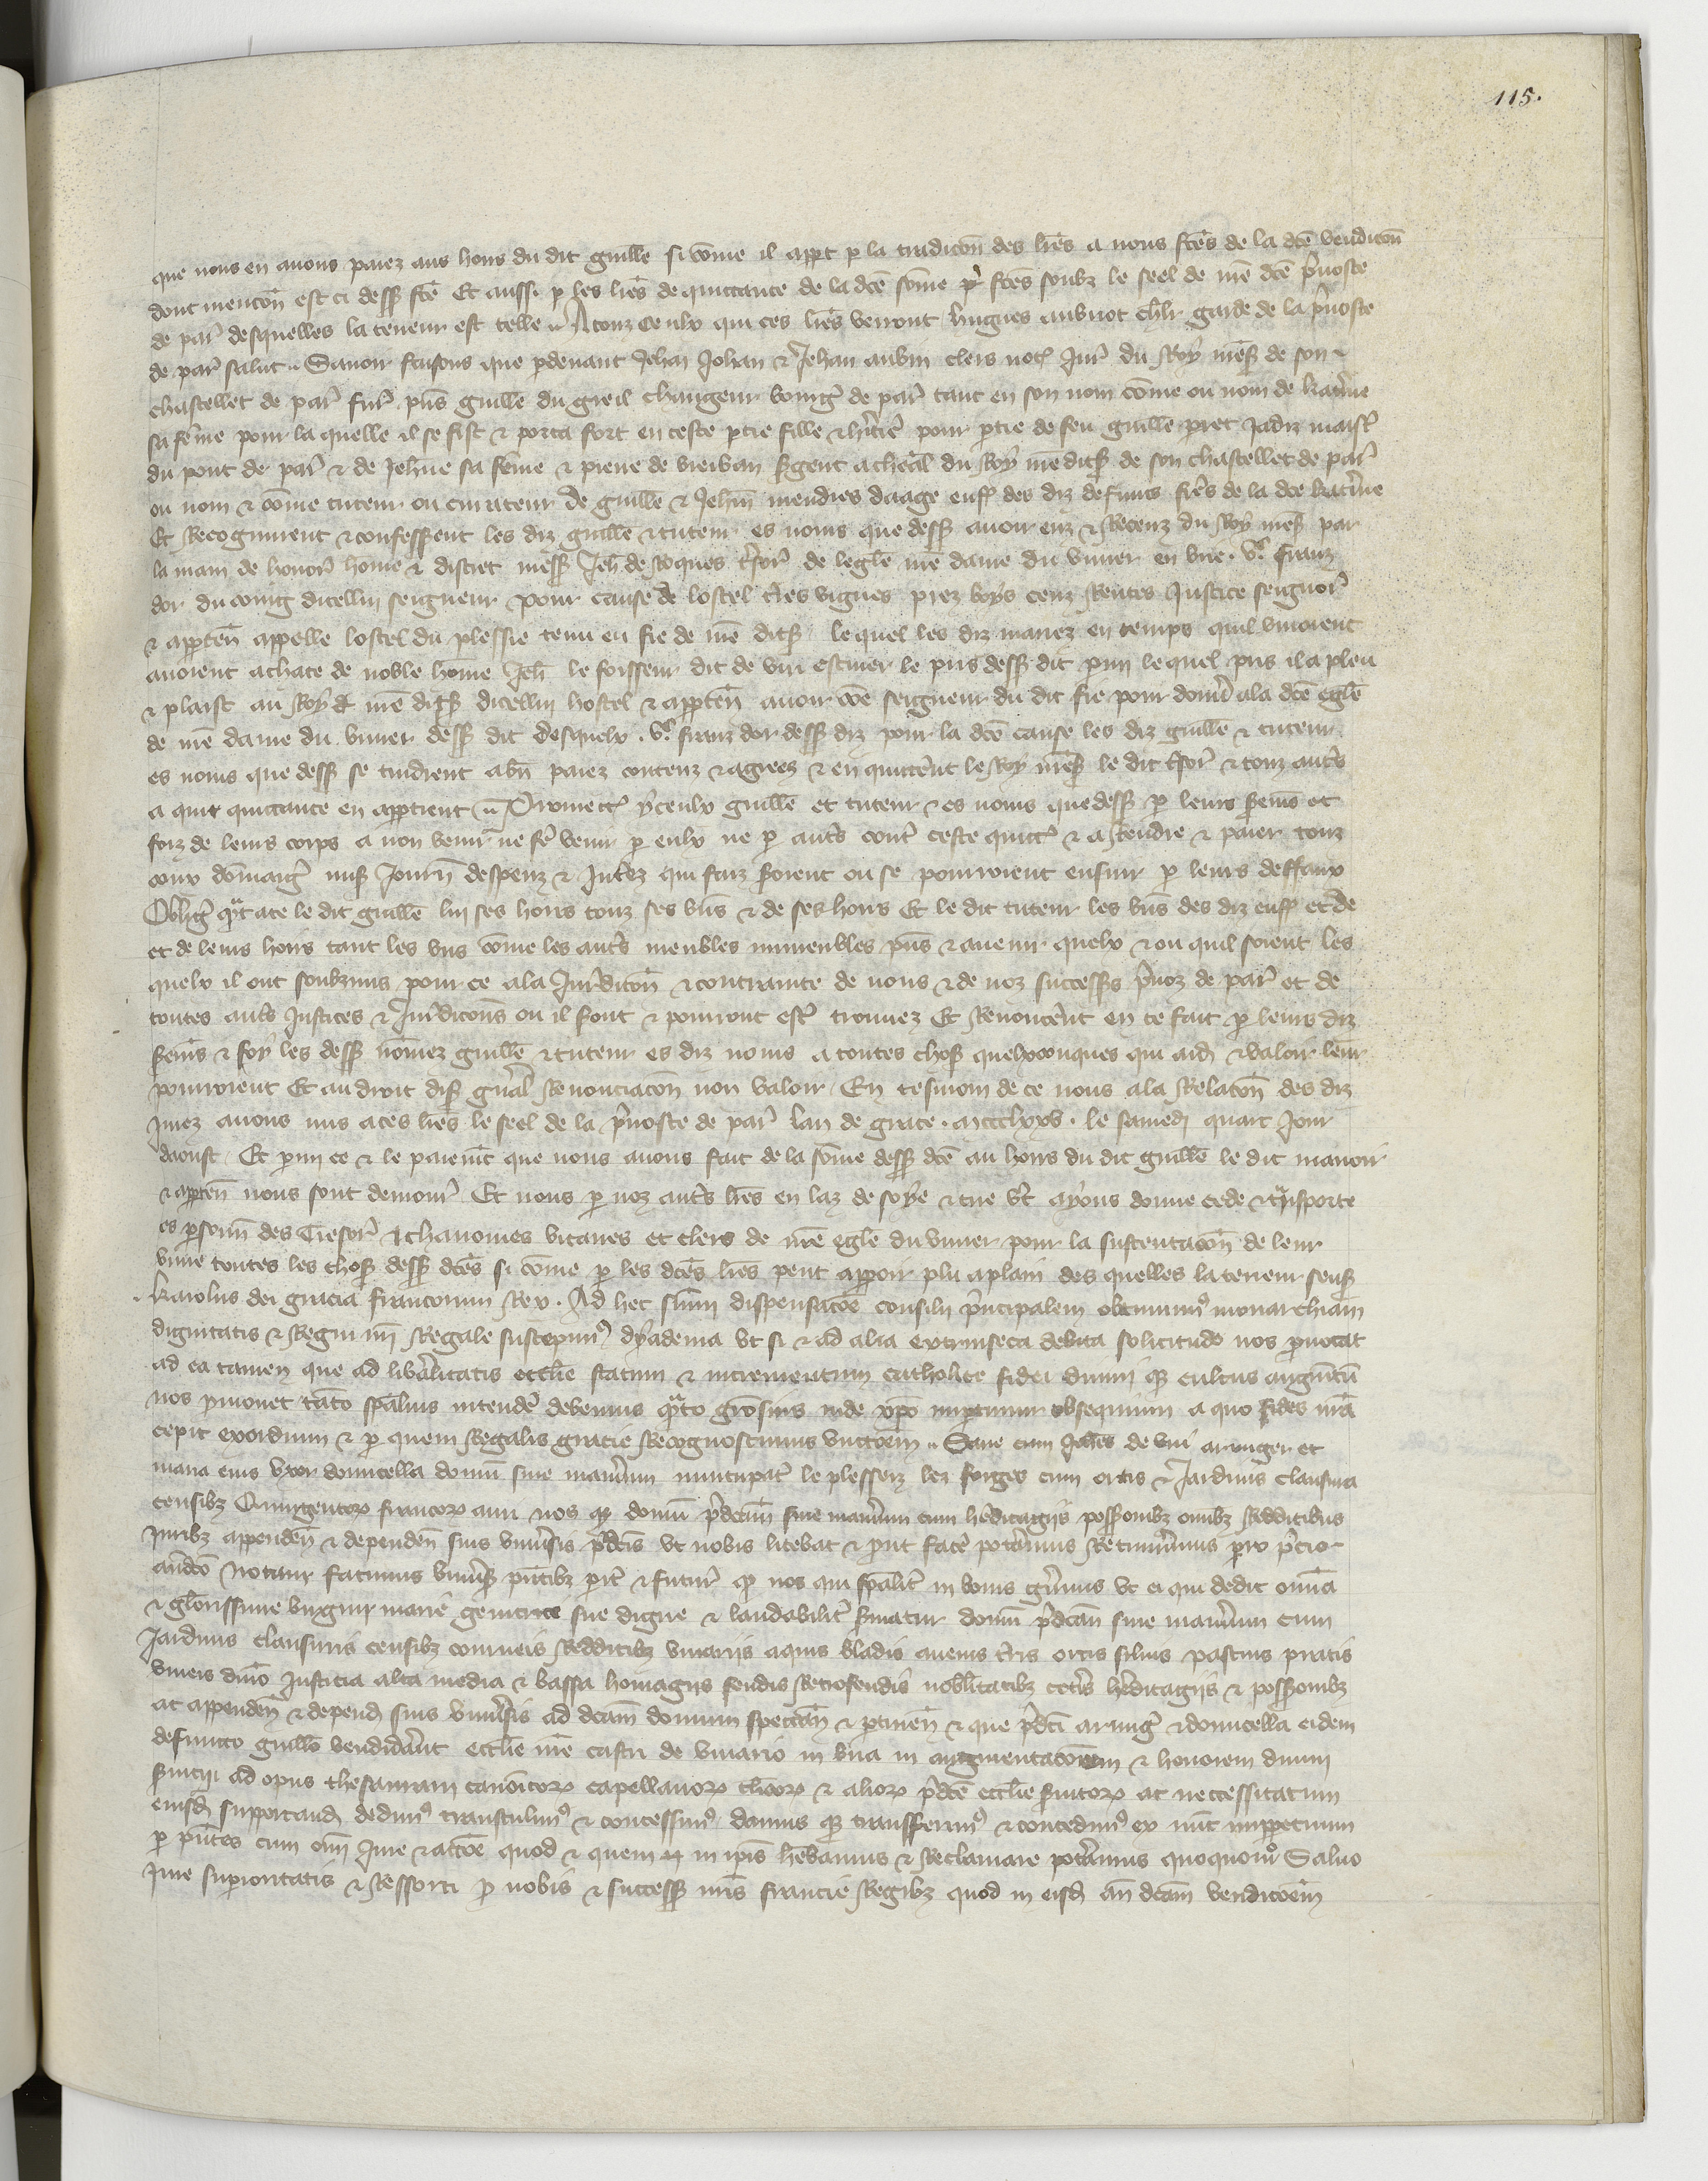 115.
que nous en avons paiez aus hoirs du dit guillē si cōme il appt p la tradicōn des lrēs a nous fcēs de la dcē vendicōn
dont mencōn est ci dess fcē Et aussi p les lrēs de quittance de la dcē sōme pr fcēs soubz le seel de nrē dcē pvoste
de par desquelles la teneur est telle A touz ceulx qui ces lrēs verront hugues aubriot chlr garde de la pvoste
de par salut Savoir faisons que pdevant Jehan Johan & Jehan aubin clers not Jur du Roy nres de son
chastellet de par fur pns guillē du greil changeur bourg de par tant en son nom cōme ou nom de katne
sa fēme pour la quelle il se fist & porta fort en ceste ptie fille & hitie pour ptie de feu guillē jadiz maist
du pont de par & de Jehne sa fēme & pierre de sgent a cheval du Roy nre dits de son chastellet de par
ou nom & cōme tuteur ou curateur de guillē & Jehn mendres daage enf des diz defuncts fres de la dce katne
Et Recognurent & confesserent les diz guillē & tuteur es noms que dess avoir euz & Receuz du Roy nres par
la main de honor hōme & discret mess Jeh de Roques tsor de leglē nrē dame du vivier en brie vc franz
dor du coing dicellui seigneur pour cause de lostel tres vignes prez boys cens Rentes Justice seignor
& apptēn appelle lostel du plessie tenu en fie de nrē dits le quel les diz mariez en temps quil vivoient
avoient achate de noble hōme Jeh le foisseur dit de viri escuier le pris dess dit pmi lequel pris il a pleu
& plaist au Roy nrē dits dicellui hostel & apptēn avoir cōe seigneur du dit fie pour donr a la dcē eglē
de nrē dame du vivier dess dit desquelx vc franz dor dess diz pour la dcē cause les diz guillē & tuteur
es noms que dess se tindrent abn paiez contenz & agreez & en quittent le Roy nres le dit tsor & touz autrs
a qui quittance en apptient Promect yceulx guillē et tuteur es noms que dess p leurs sems et
foiz de leurs corps a non venir ne fe venir p eulx ne p autrs cont ceste quitt & a Rendre & paier touz
coux dōmaig mis Journ despenz & Intez qui faiz soient ou se pourroient ensuir p leurs deffaux
Oblig qt a ce le dit guillē lui ses hoirs touz ses bns & de ses hoirs Et le dit tuteur les bns des diz enf et de
et de leurs hoirs tant les uns cōme les autrs meubles immeubles pns & avenir quelx & ou quil soient les
quelx il ont soubzmis pour ce a la Juridicōn & contrainte de nous & de noz successs pvoz de par et de
toutes autrs justices & Juridicōns ou il sont & pourront est trouvez Et Renoncent en ce fait p leurs diz
sems & foy les dess nōmez guillē & tuteur es diz noms a toutes chos quelxconques qui aid & valoir leur
pourroient Et au droit dis gnal Renonciacōn non valoir En tesmoin de ce nous a la Relacōn des diz
Jurez avons mis a ces lrēs le seel de la pvoste de par lan de grace mccclxxv le samed quart Jour
daoust Et pmi ce & le paiemt que nous avons fait de la sōme dess dcē au hoirs du dit guillē le dit manoir
& apptēn nous sont demour Et nous p noz autrs lrēs en laz de soye & cire vt ayons donne cede & tnsporte
es psonn des Tresor & chanoines vicaires et clers de nrē eglē du vivier pour la sustentacōn de leur
vivre toutes les chos dess dcēs si cōme p les dcēs lrēs peut apparoir plu a plain des quelles la teneur sensi
karolus dei gracia francorum Rex Ad hec sūm dispensacōe consilii pncipalem obtinuim monarchiam
dignitatis & Regni nri Regale suscepim dyadema ut si & ad alia extrinseca debita solicitudo nos pvocat
ad ea tamen que ad libalitatis ecclie statum & incrementum catholice fidei divini q cultus augmtū
nos pmovet tāto spālius intende debemus qto grōsius inde xpō impenditur obsequium a quo fides nrā
cepit exordium & p quem Regalis gracie Recognoscimus unctōem Sane cum Johēs de viri armiger et
maria eius uxor domicella domū sive maniun nuncupat le plesseiz lez forges cum ortis & Jardinis clausura
censibz Quingentor francor auri nos q domū pdcām sive maniun cum heditagiis possionibz omibz Redditibus
Juribz appendēn & dependēn suis univsis pdcis ut nobis licebat & put face potamus Retinuimus pro pcio
andco Notum facimus univs pntibz pit & futur q nos qui spalit in bonis gimus ut ei qui dedit omā
& gloriosissime virgini marie genitrici sue digne & laudabilit sviatur domū pdcān sive maniun cum
Jardinis clausuris censibz corveis Redditibz vivariis aquis bladis avenis tris ortis silvis pascuis pratis
vineis dnio Justicia alta media & bassa homagiis feudis Retrofeudis nobilitatibz cetis heditagiis & possionibz
ac appendēn & depend suis univsis ad dcam domum spectan & ptinen & que pdci armig & domicella eidem
defuncto guillo vendidant ecclie nrē castri de vivario in bria in augmentacōnem & honorem divini
svicii ad opus thesaurarii canōicor capellanor clicor & alior pdcē ecclie svitor ac neccessitatum
eiusd supportand dedim transtulim & concessim damus q transferim & concedim ex nūc imppetuum
p pntes cum omi Jure & actōe quod & quem in ipis hēbamus & Reclamare potamus quoquomo Salvo
Jure supioritatis & Ressorti p nobis & success nris francie Regibz quod in eisd an dcam vendicōem